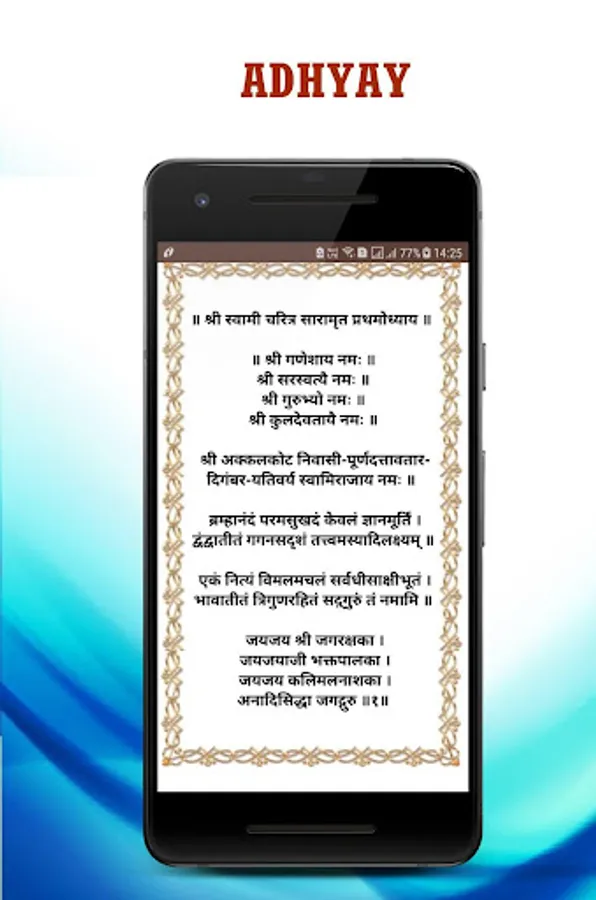 ADHYAY
77% 14:25
॥ श्री स्वामी चरित्र सारामृत प्रथमोध्याय ॥
॥ श्री गणेशाय नमः ॥
श्री सरस्वत्यै नमः ॥
श्री गुरुभ्यो नमः ॥
श्री कुलदेवतायै नमः ॥
श्री अक्कलकोट निवासी-पूर्णदत्तावतार-
दिगंबर-यतिवर्य स्वामिराजाय नमः ॥
ब्रम्हानंदं परमसुखदं केवलं ज्ञानमूर्तिं ।
द्वंद्वातीतं गगनसदृशं तत्त्वमस्यादिलक्ष्यम् ॥
एकं नित्यं विमलमचलं सर्वधीसाक्षीभूतं ।
भावातीतं त्रिगुणरहितं सद्‍गुरुं तं नमामि ॥
जयजय श्री जगरक्षका ।
जयजयाजी भक्तपालका ।
जयजय कलिमलनाशका ।
अनादिसिद्धा जगद्गुरु ॥१॥